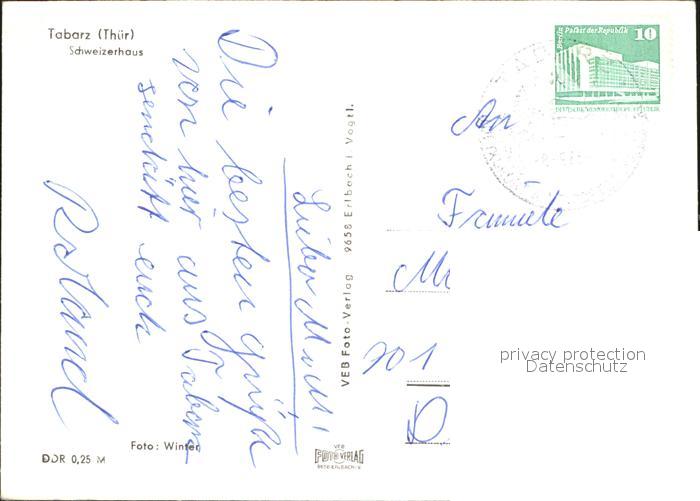 Tabarz (Thür)
Schweizerhaus
Die besten grüße
von hier aus Tabarz
sendet euch
Roland
Foto: Winter
DDR 0,25 M
VEB Foto-Verlag 9658 Erlbach i. Vogtl.
VEB
FOTO VERLAG
9658 ERLBACH/V.
Berlin Palast der Republik 10
DEUTSCHE DEMOKRATISCHE REPUBLIK
An
Familie
M
701
D
privacy protection
Datenschutz